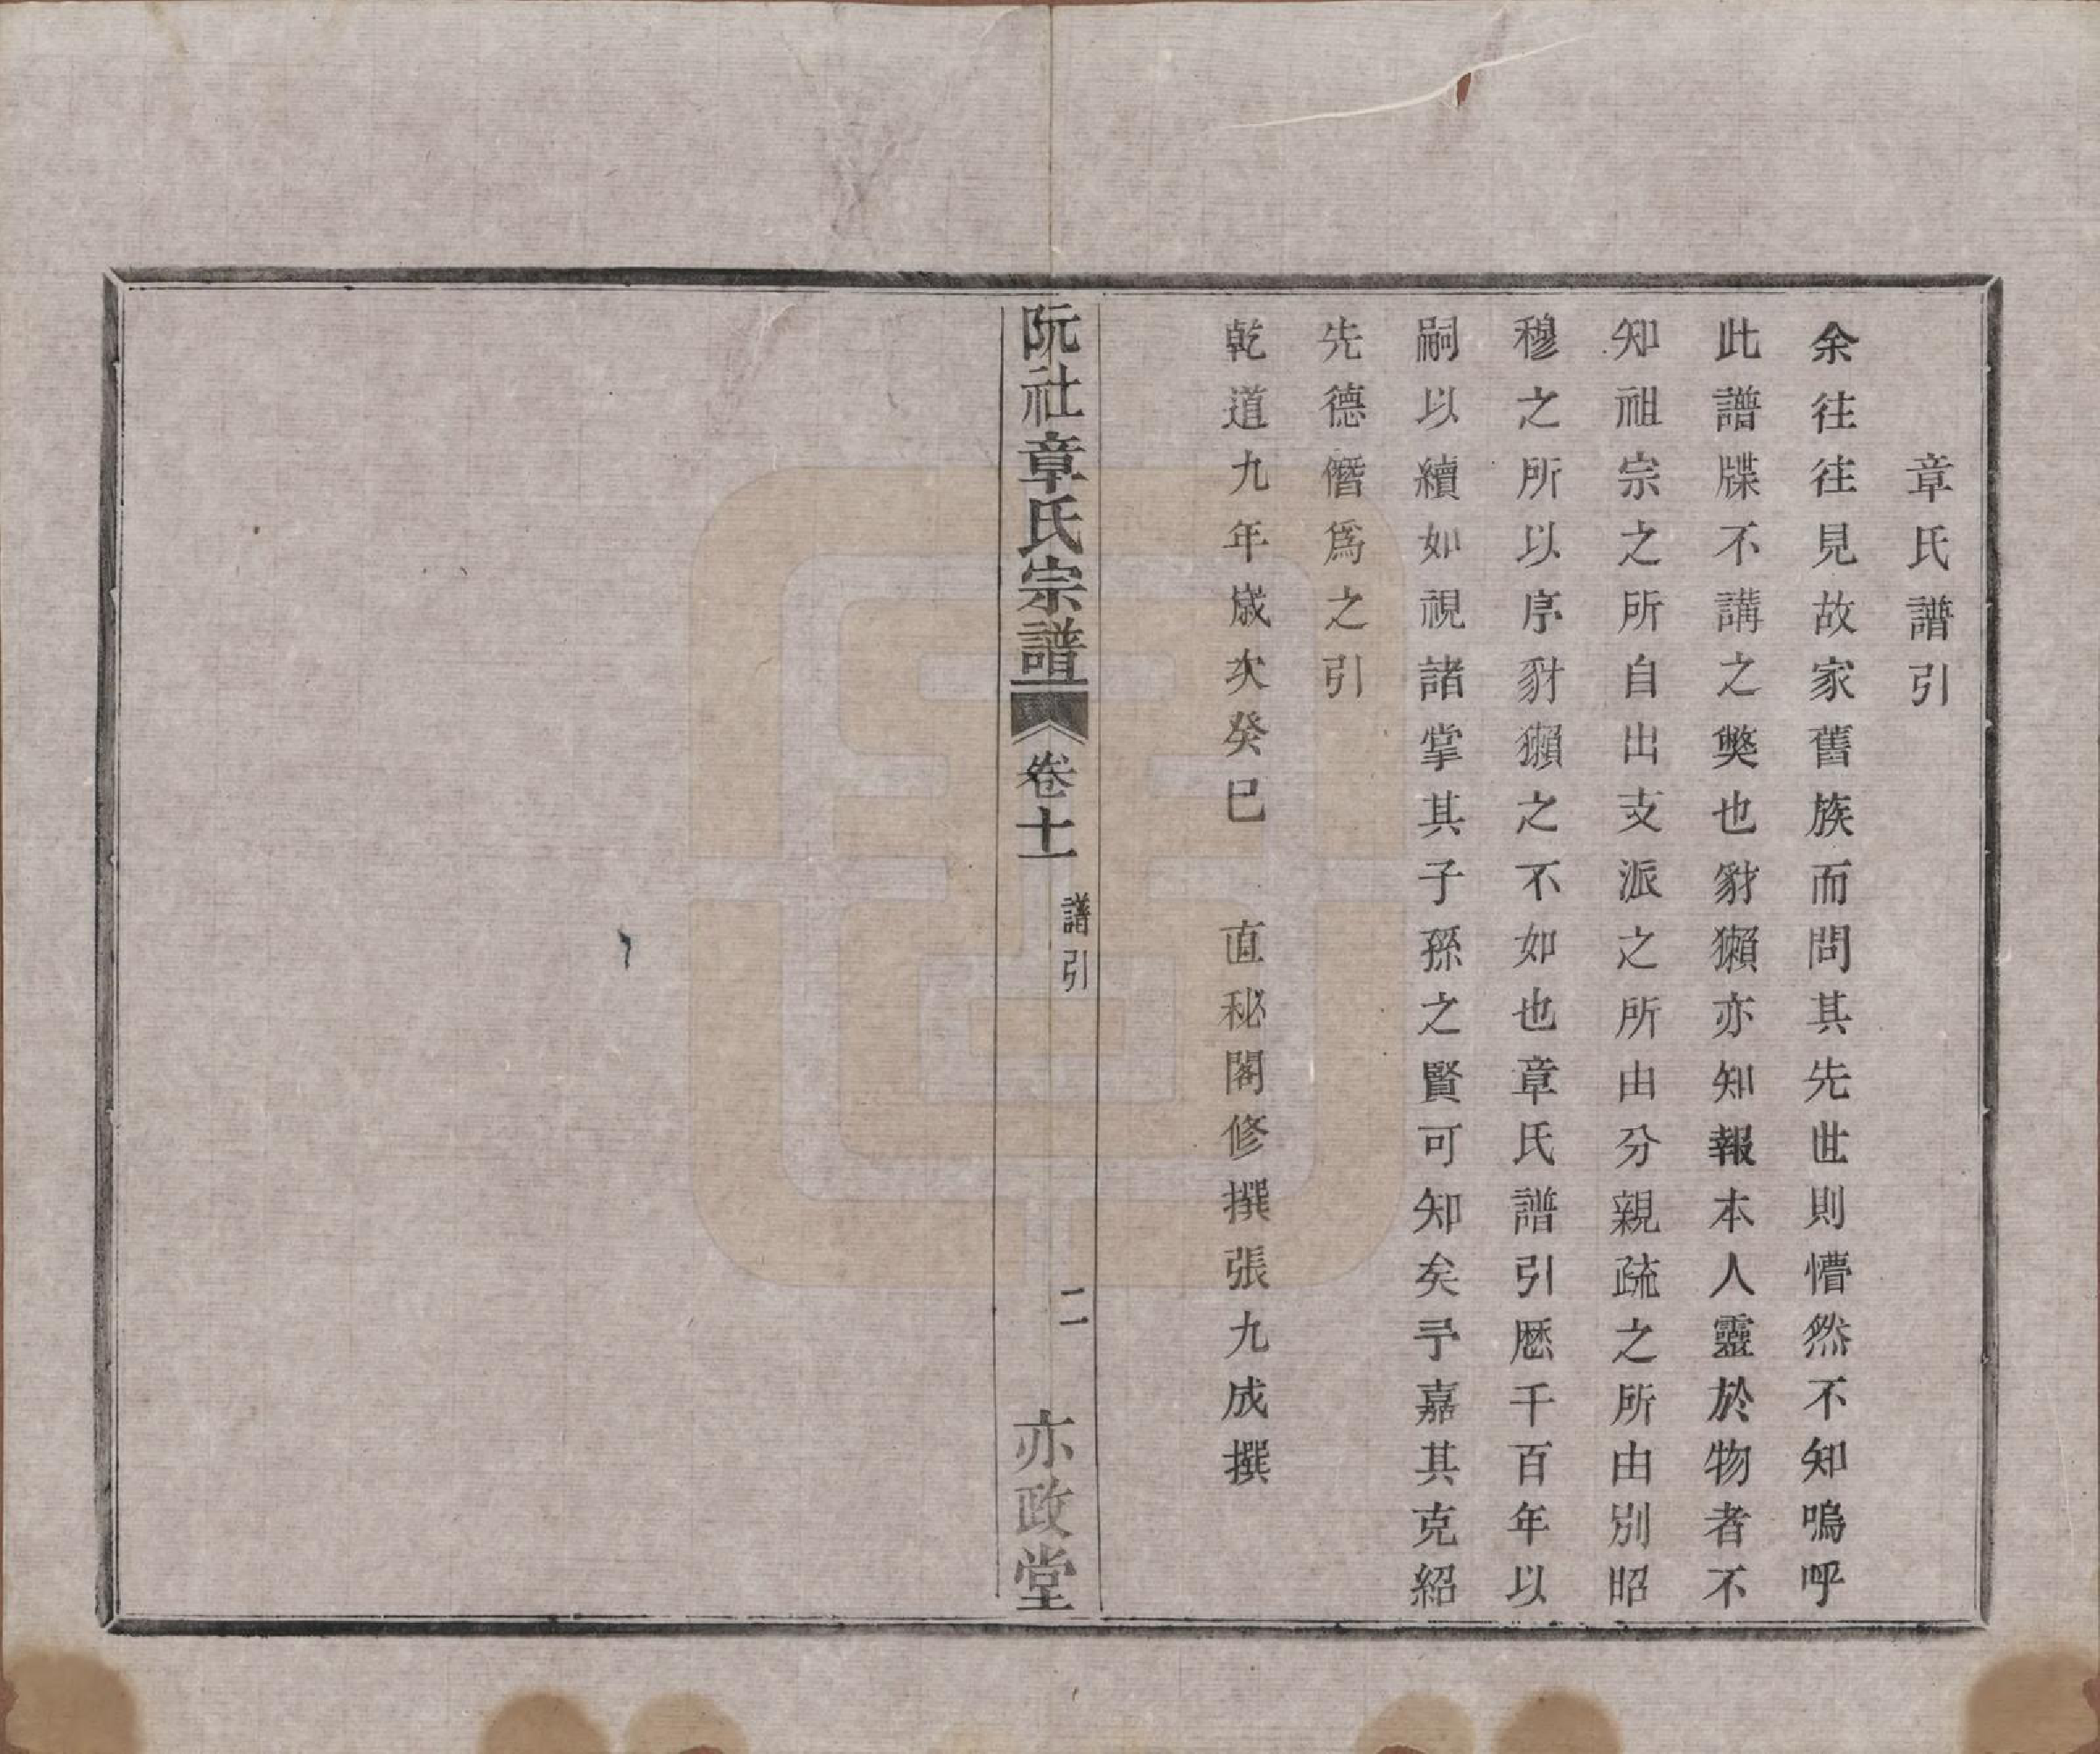 章氏譜引
余往往見故家舊族而問其先世則懵然不知嗚呼
此譜牒不講之獘也豺獺亦知報本人靈於物者不
知祖宗之所自出支派之所由分親疏之所由別昭
穆之所以序豺獺之不如也章氏譜引歴千百年以
嗣以續如視諸掌其子孫之賢可知矣予嘉其克紹
先德僭爲之引
乾道九年歲次癸巳　直秘閣修撰張九成撰
阮社章氏宗譜　卷十一　譜引　二　亦政堂